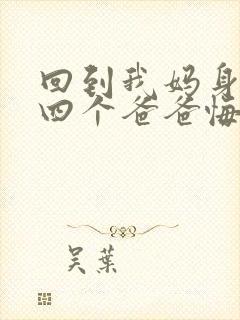 回到我妈身
四个爸爸悔
吴叶